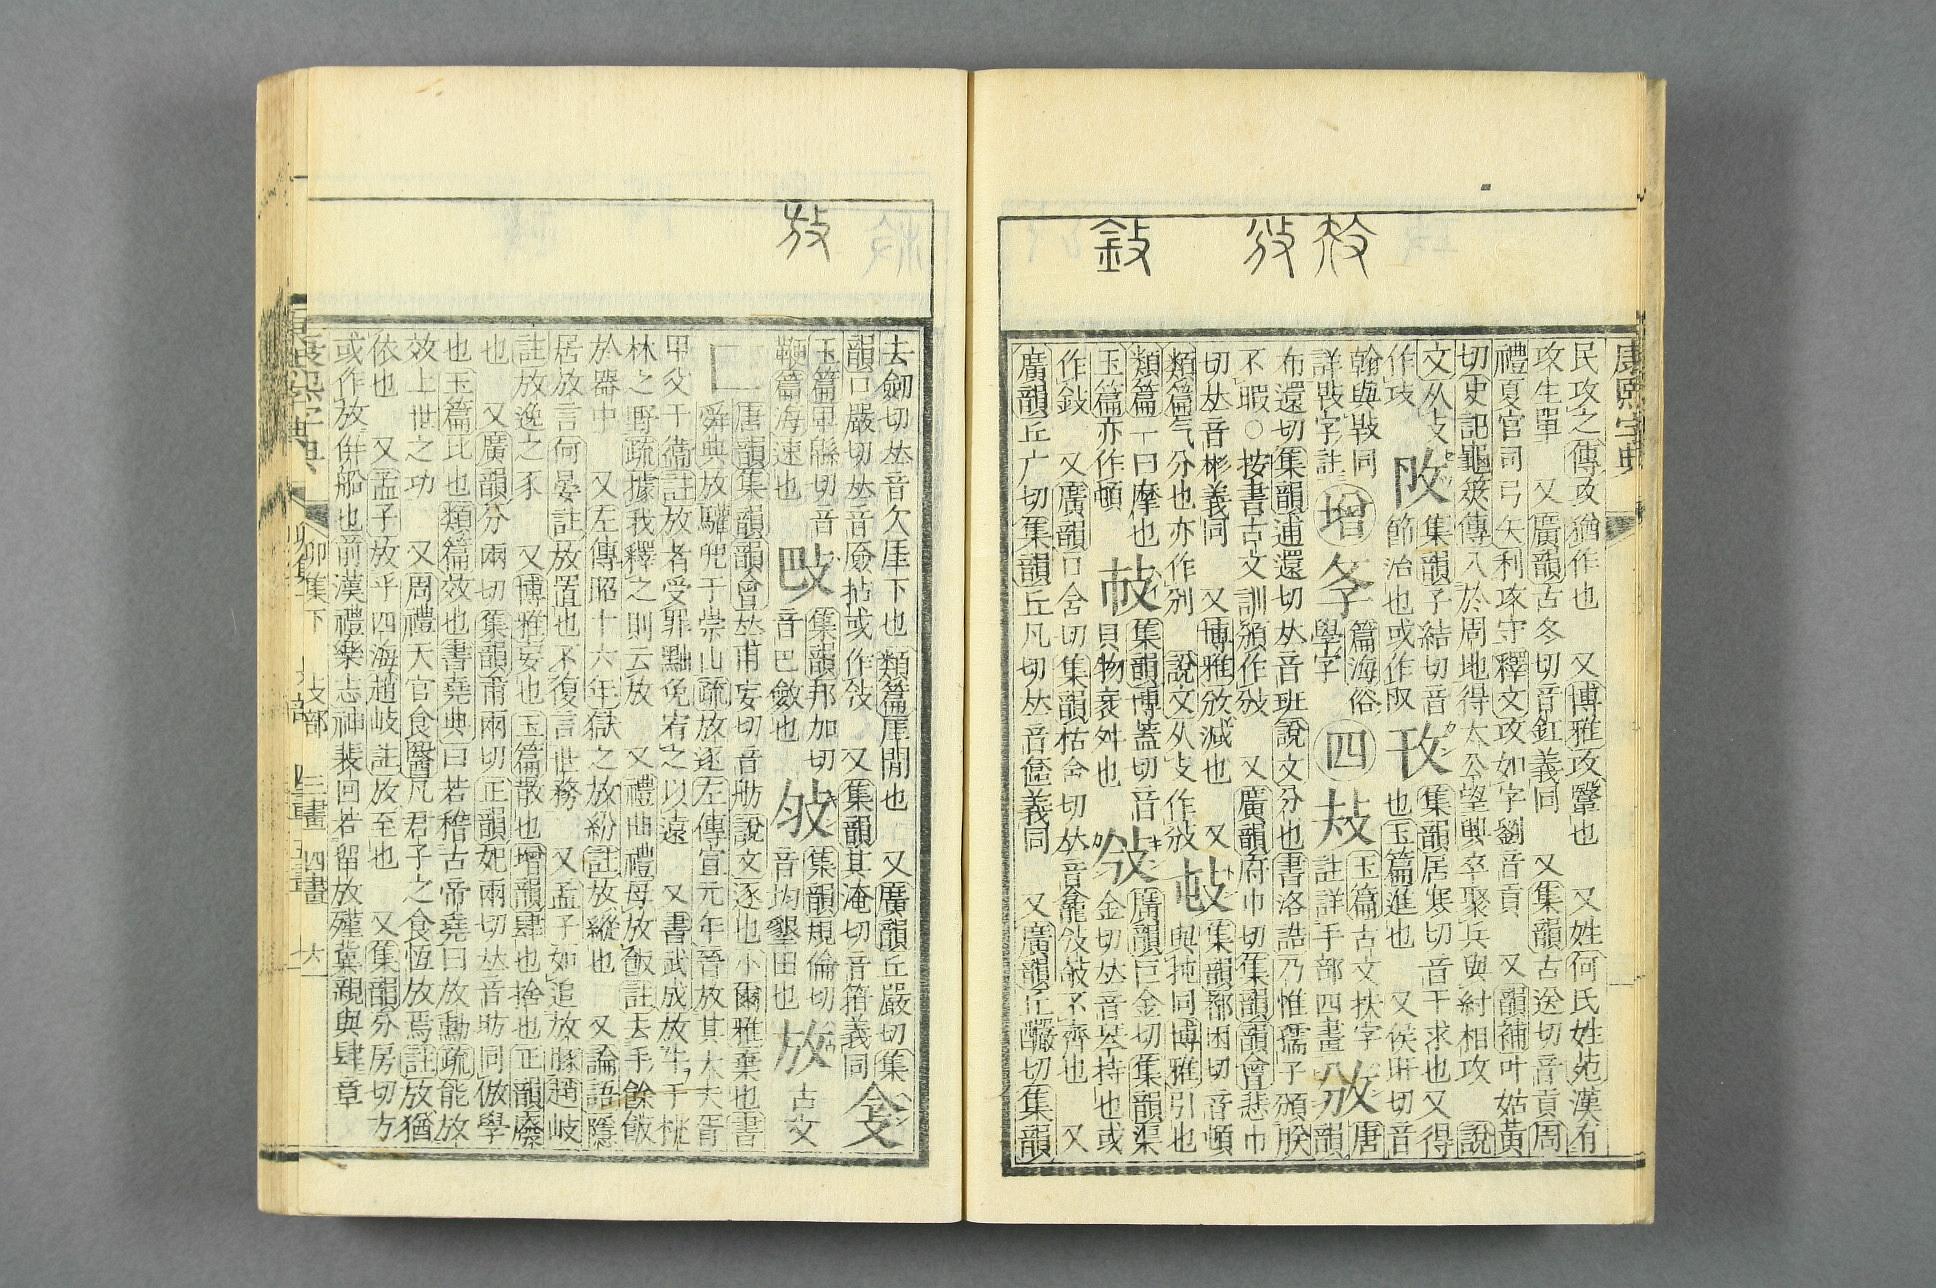 康熙字典
民攻之傳攻猶作也 又博雅攻鑿也 又姓何氏姓苑漢有
攻生單 又廣韻古冬切音釭義同 又集韻古送切音貢周
禮夏官司弓矢利攻守釋文攻如字劉音貢 又韻補叶姑黃
切史記龜筴傳入於周地得太公望興卒聚兵與紂相攻 說
文从攴 㪂集韻子結切音節治也或作㔾
作攱 攼集韻居寒切音干求也又得也玉篇進也 又侯旰切音
翰與㪋同 增 㪲篇海俗學字 四 㩻玉篇古文扶字註詳手部四畫 攽唐韻
布還切集韻逋還切𠀤音班說文分也書洛誥乃惟孺子頒朕
不暇○按書古文訓頒作攽 又廣韻府巾切集韻韻會悲巾
切𠀤音彬義同 又博雅攽減也 又
類篇氣分也亦作別 說文从攴作攽 集韻都困切音頓與扽同博雅引也
類篇一曰摩也 集韻博蓋切音貝物衰舛也 廣韻巨金切集韻渠金切𠀤音琴持也或
玉篇亦作頓
作鈙 又廣韻口含切集韻枯含切𠀤音龕㪁攲不齊也 又
廣韻丘广切集韻丘凡切𠀤音㐸義同 又廣韻丘釅切集韻
放
去劒切𠀤音欠厓下也類篇厓閒也 又廣韻丘嚴切集
韻口嚴切𠀤音厱拈或作㪁 又集韻其淹切音箝義同
玉篇甲縣切音鞭篇海速也 集韻邦加切音巴斂也 集韻規倫切音均墾田也 放古文
唐韻集韻韻會𠀤甫妄切音舫說文逐也小爾雅棄也書
舜典放驩兜于崇山疏放逐左傳宣元年晉放其大夫胥
甲父于衞註放者受罪黜免宥之以遠 又書武成放牛于桃
林之野疏據我釋之則云放 又禮曲禮毋放飯註去手餘飯
於器中 又左傳昭十六年獄之放紛註放縱也 又論語隱
居放言何晏註放置也不復言世務 又孟子如追放豚趙岐
註放逸之豕 又博雅妄也玉篇散也增韻肆也捨也正韻廢
也 又廣韻分兩切集韻甫兩切正韻妃兩切𠀤音昉同倣學
也玉篇比也類篇效也書堯典曰若稽古帝堯曰放勳疏能放
效上世之功 又周禮天官食醫凡君子之食恆放焉註放猶
依也 又孟子放乎四海趙岐註放至也 又集韻分房切方
或作放倂船也前漢禮樂志神裴回若留放殣冀親與肆章
康熙字典 卯集下 攴部 三畫 四畫 六